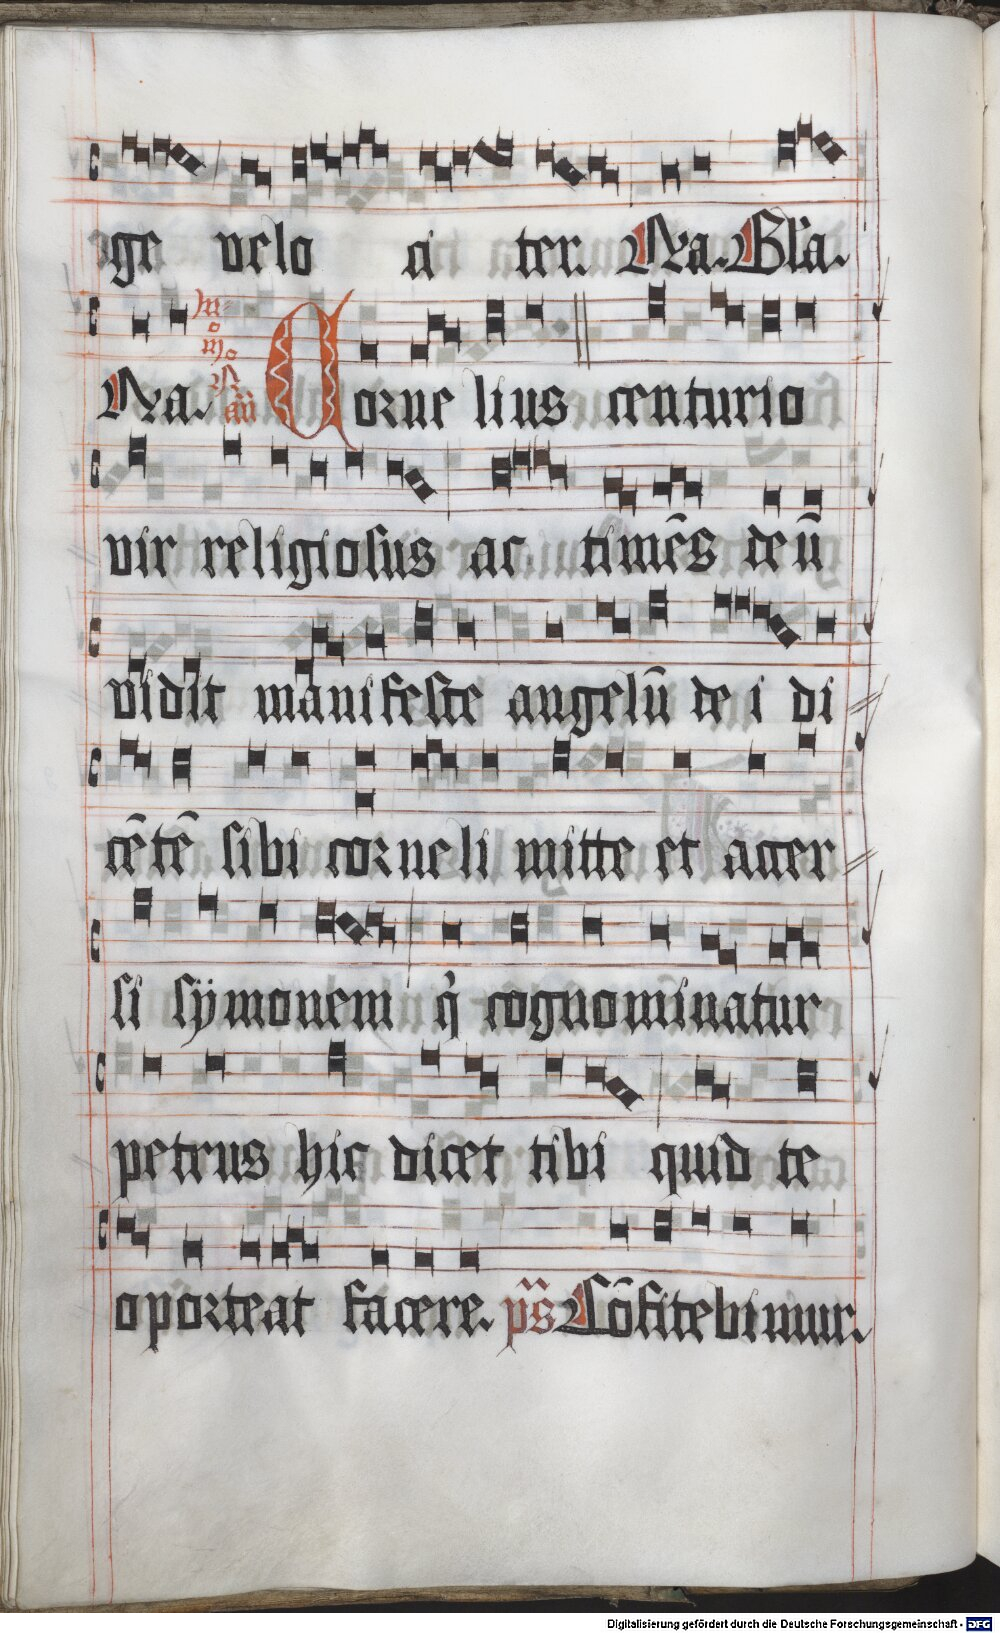 ge velo ci ter. Na. Gl'a.
Na. in i o mo N añ Corne lius centurio
vir religiosus ac timēs deū
vidit manifeste angelū de i di
cētē sibi corneli mitte et accer
si sÿmonem q̇ cognominatur
petrus hic dicet tibi quid te
oporteat facere. ps Cōfitebimur.
Digitalisierung gefördert durch die Deutsche Forschungsgemeinschaft - DFG